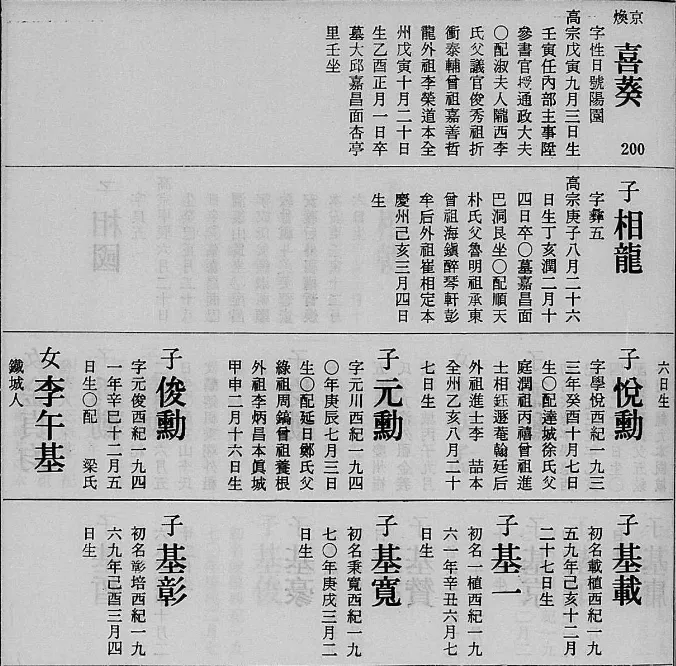 京
煥
喜葵
200
字性日號陽園
高宗戊寅九月三日生
壬寅任內部主事陞
參書官授通政大夫
〇配淑夫人隴西李
氏父議官俊秀祖折
衝泰輔曾祖嘉善哲
龍外祖李榮道本全
州戊寅十月二十日
生乙酉正月一日卒
墓大邱嘉昌面杏亭
里壬坐
子 相龍
字彝五
高宗庚子八月二十六
日生丁亥潤二月十
四日卒〇墓嘉昌面
巴洞艮坐〇配順天
朴氏父魯明祖承東
曾祖海鎭醉琴軒彭
年后外祖崔相定本
慶州己亥三月四日
生
六日生
子 悅勳
字學悅西紀一九三
三年癸酉十月七日
生〇配達城徐氏父
庭潤祖丙禧曾祖進
士相鈺遯菴翰廷后
外祖進士李 喆本
全州乙亥八月二十
七日生
子 元勳
字元川西紀一九四
〇年庚辰七月三日
生〇配延日鄭氏父
綠祖周鎬曾祖養根
外祖李炳昌本眞城
甲申二月十六日生
子 俊勳
字元俊西紀一九四
一年辛巳十二月五
日生〇配 梁氏
女 李午基
鐵城人
子 基載
初名載植西紀一九
五九年己亥十二月
二十七日生
子 基一
初名一植西紀一九
六一年辛丑六月七
日生
子 基寬
初名秉寬西紀一九
七〇年庚戌三月二
日生
子 基彰
初名彰培西紀一九
六九年己酉三月四
日生